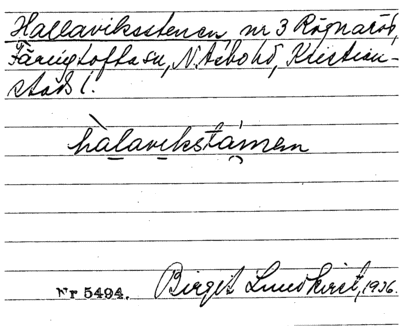 Hallaviksstenen nr 3 Rögnaröd,
Färingtofta sn, N. Åsbo hd, Kristian-
stads l.
hàlavikstámen
Nr 5494. Birgit Lundkvist, 1936.